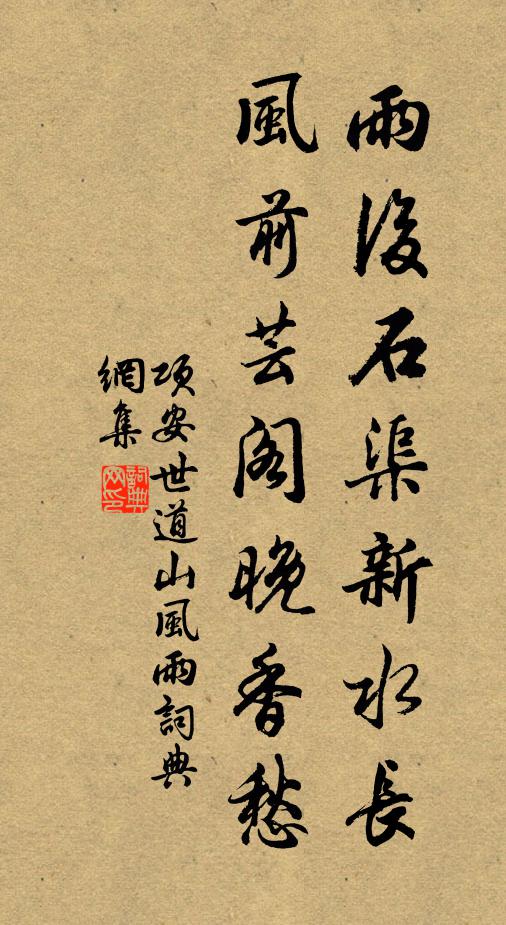 雨後石渠新水長
風前芸閣晚香愁
項安世道山風雨詞典
網集
詞典
网印